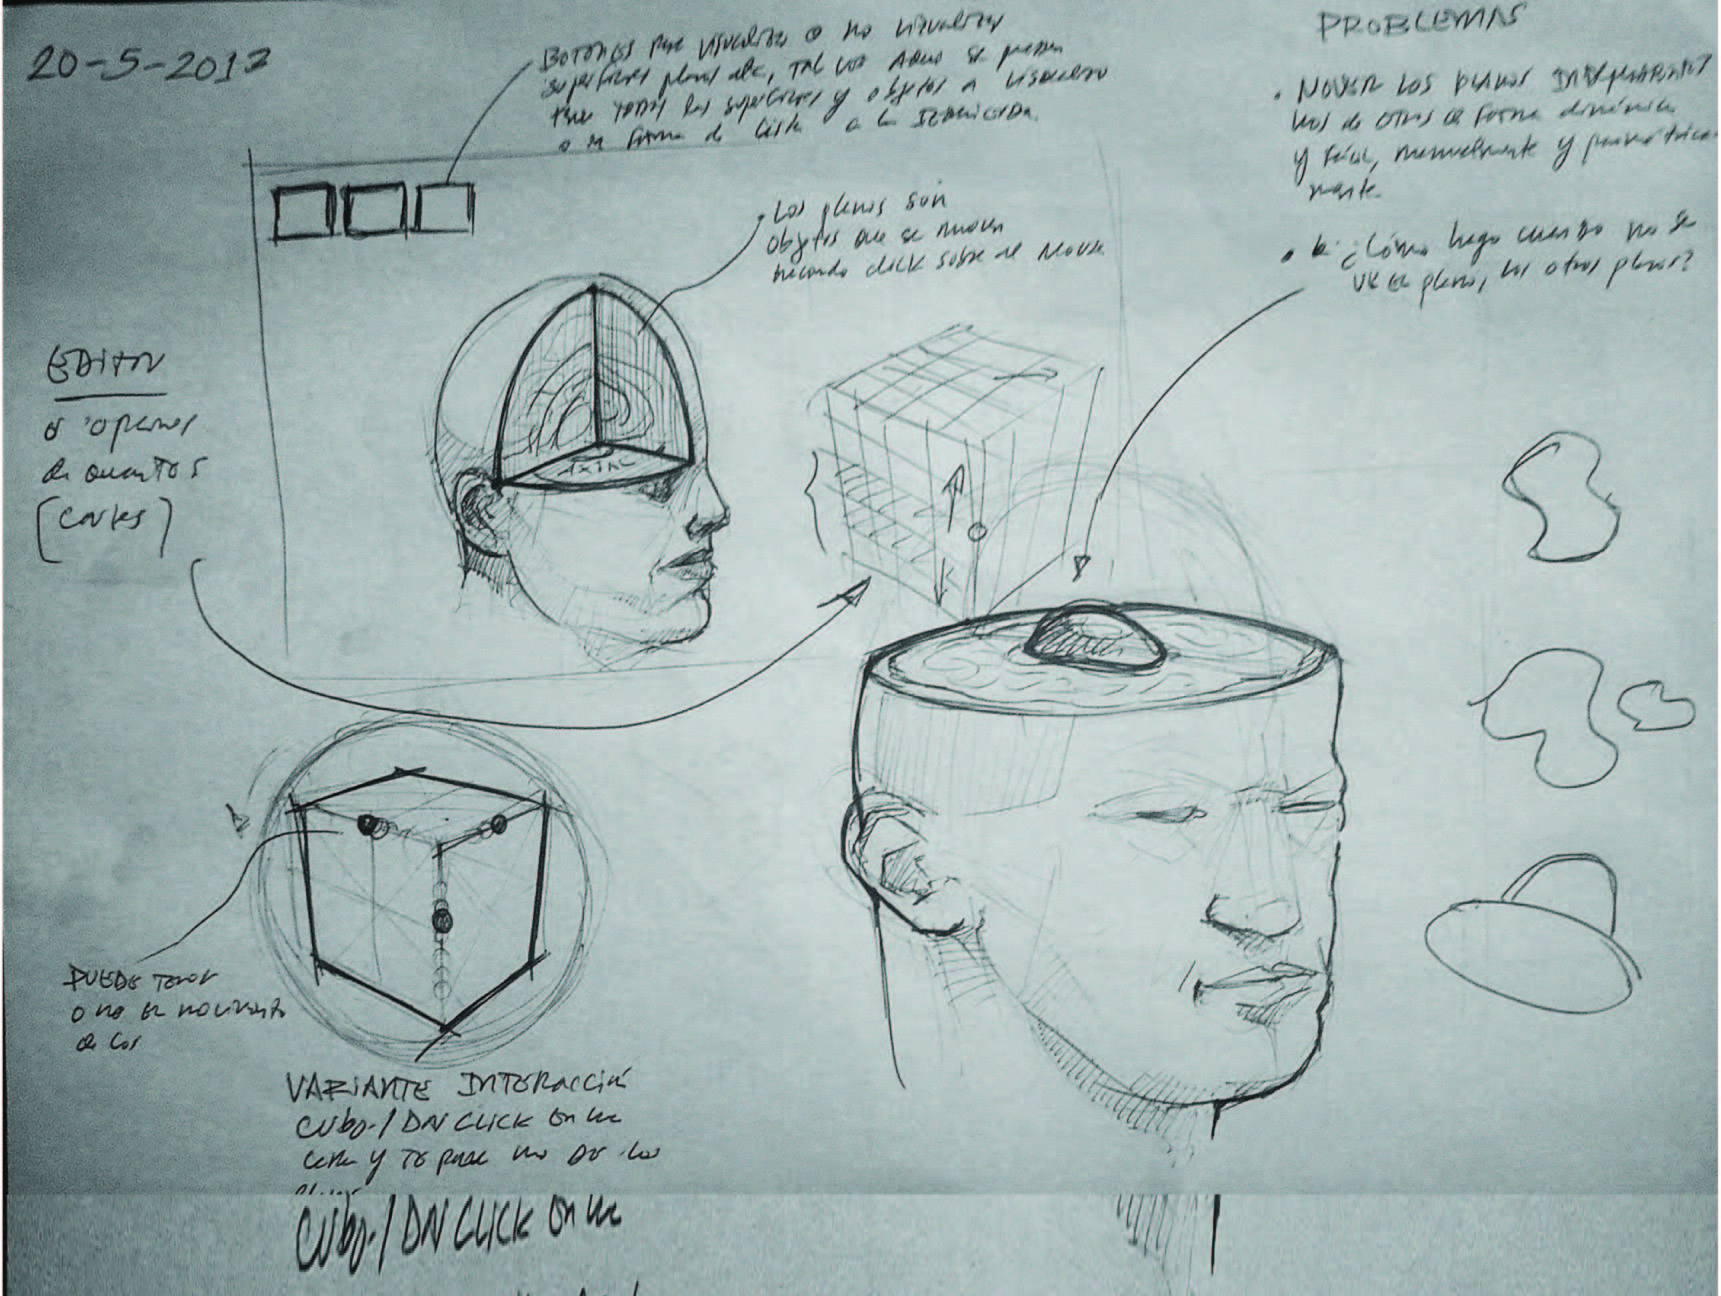 20-5-2013
BOTONES para visualizar o no visualizar
superficies planos etc, tal vez Aqui se pueden
todas las superficies y objetos a visualizar
o en forma de lista a la IZQUIERDA
PROBLEMAS
• MOVER LOS PLANOS INDEPENDIENTES
unos de OTROS de forma dinámica
y fácil, manualmente y paramétrica-
mente
• ¿Cómo hago cuando no se
ve el plano, los otros planos?
• Los planos son
objetos que se mueven
haciendo click sobre el Mouse
EDITAR
de cuantos
(cortes)
AXIAL
PUEDE Tener
o no el movimiento
de los
VARIANTE INTERACCIÓN
CUBO-/ DAN CLICK en una
cara y te pone uno de los
CUBO-/ DAN CLICK en una